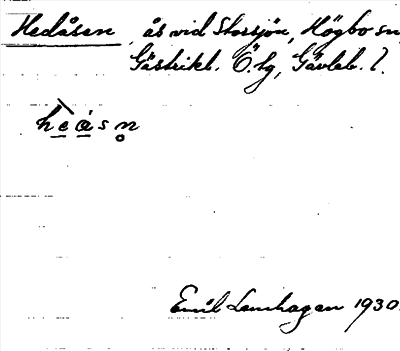 Hedåsen, ås vid Storsjön, Högbo sn,
Gästrikl. Ö. hg, Gävleb. l.
heåsn
Emil Lenhagen 1930.